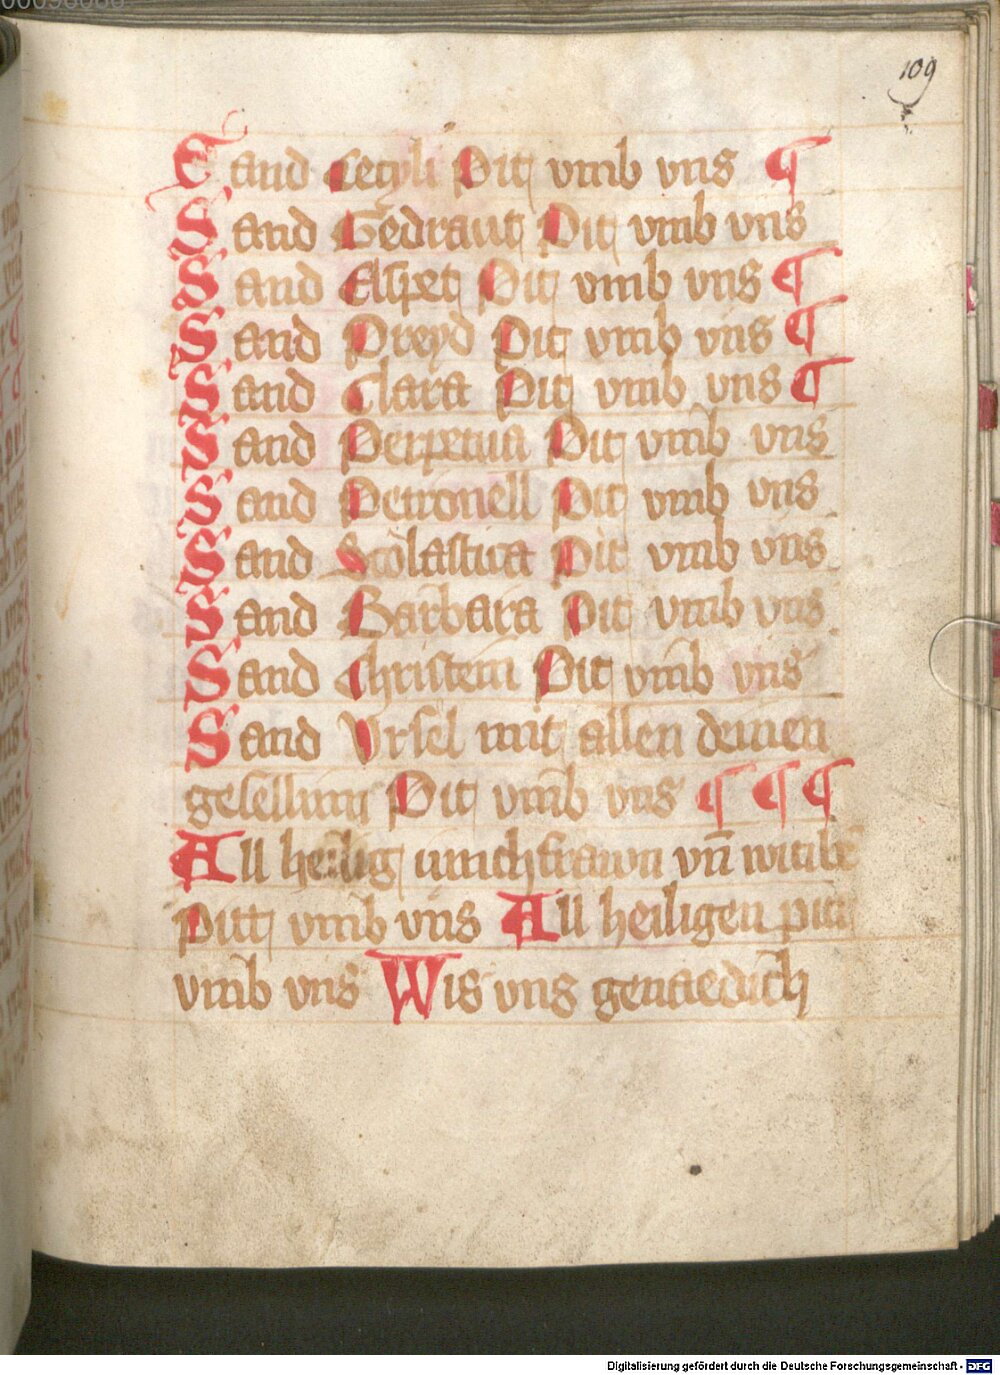 109
Sand Cecyli Pit vmb vns ¶
Sand Gedraut Pit vmb vns
Sand Elspet Pit vmb vns ¶
Sand Preyd Pit vmb vns ¶
Sand Clara Pit vmb vns ¶
Sand Perpetua Pit vmb vns
Sand Petronell Pit vmb vns
Sand Scolastica Pit vmb vns
Sand Barbara Pit vmb vns
Sand Christein Pit vmb vns
Sand Vrsel mit allen deinen
gesellinn Pit vmb vns ¶ ¶ ¶
All heilig iunchfrawn vn̄ witibē
Pitt vmb vns All heiligen pitt
vmb vns Wis vns genaedich
Digitalisierung gefördert durch die Deutsche Forschungsgemeinschaft - DFG